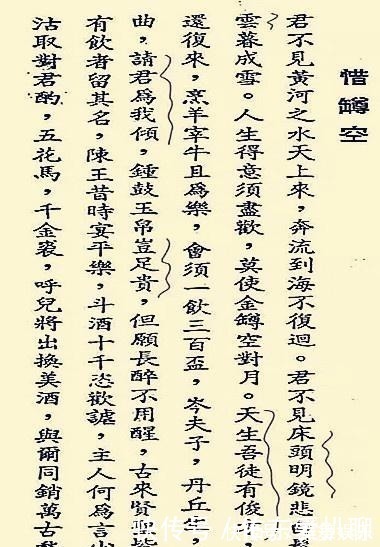 惜罇空
君不見黃河之水天上來，奔流到海不復迴。君不見床頭明鏡悲白
雲暮成雪。人生得意須盡歡，莫使金罇空對月。天生吾徒有俊
還復來，烹羊宰牛且爲樂，會須一飲三百盃，岑夫子，丹丘生
曲，請君爲我傾，鍾鼓玉帛豈足貴，但願長醉不用醒，古來賢
有飲者留其名，陳王昔時宴平樂，斗酒十千恣歡謔，主人何爲言少
沽取對君酌，五花馬，千金裘，呼兒將出換美酒，與爾同銷萬古